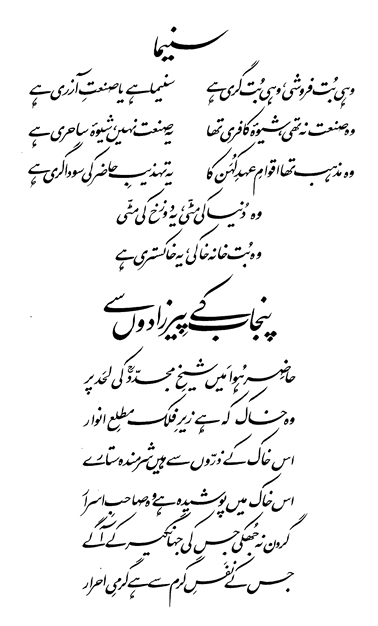 سنیما
وہی بُت فروشی، وہی بُت گری ہے سنیما ہے یا صنعتِ آزری ہے
وہ صنعت نہ تھی، شیوۂ کافری تھا یہ صنعت نہیں، شیوۂ ساحری ہے
وہ مذہب تھا اقوامِ عہدِ کُہن کا یہ تہذیبِ حاضر کی سوداگری ہے
وہ دُنیا کی مٹّی، یہ دوزخ کی مٹّی
وہ بُت خانہ خاکی، یہ خاکستری ہے
پنجاب کے پِیرزادوں سے
حاضر ہُوا میں شیخِ مجدّدؒ کی لحَد پر
وہ خاک کہ ہے زیرِ فلک مطلعِ انوار
اس خاک کے ذرّوں سے ہیں شرمندہ ستارے
اس خاک میں پوشیدہ ہے وہ صاحبِ اسرار
گردن نہ جھُکی جس کی جہانگیر کے آگے
جس کے نفَسِ گرم سے ہے گرمیِ احرار